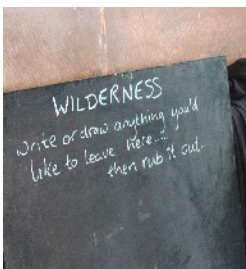 WILDERNESS
Write or draw anything you'd
like to leave here...
then rub it out..